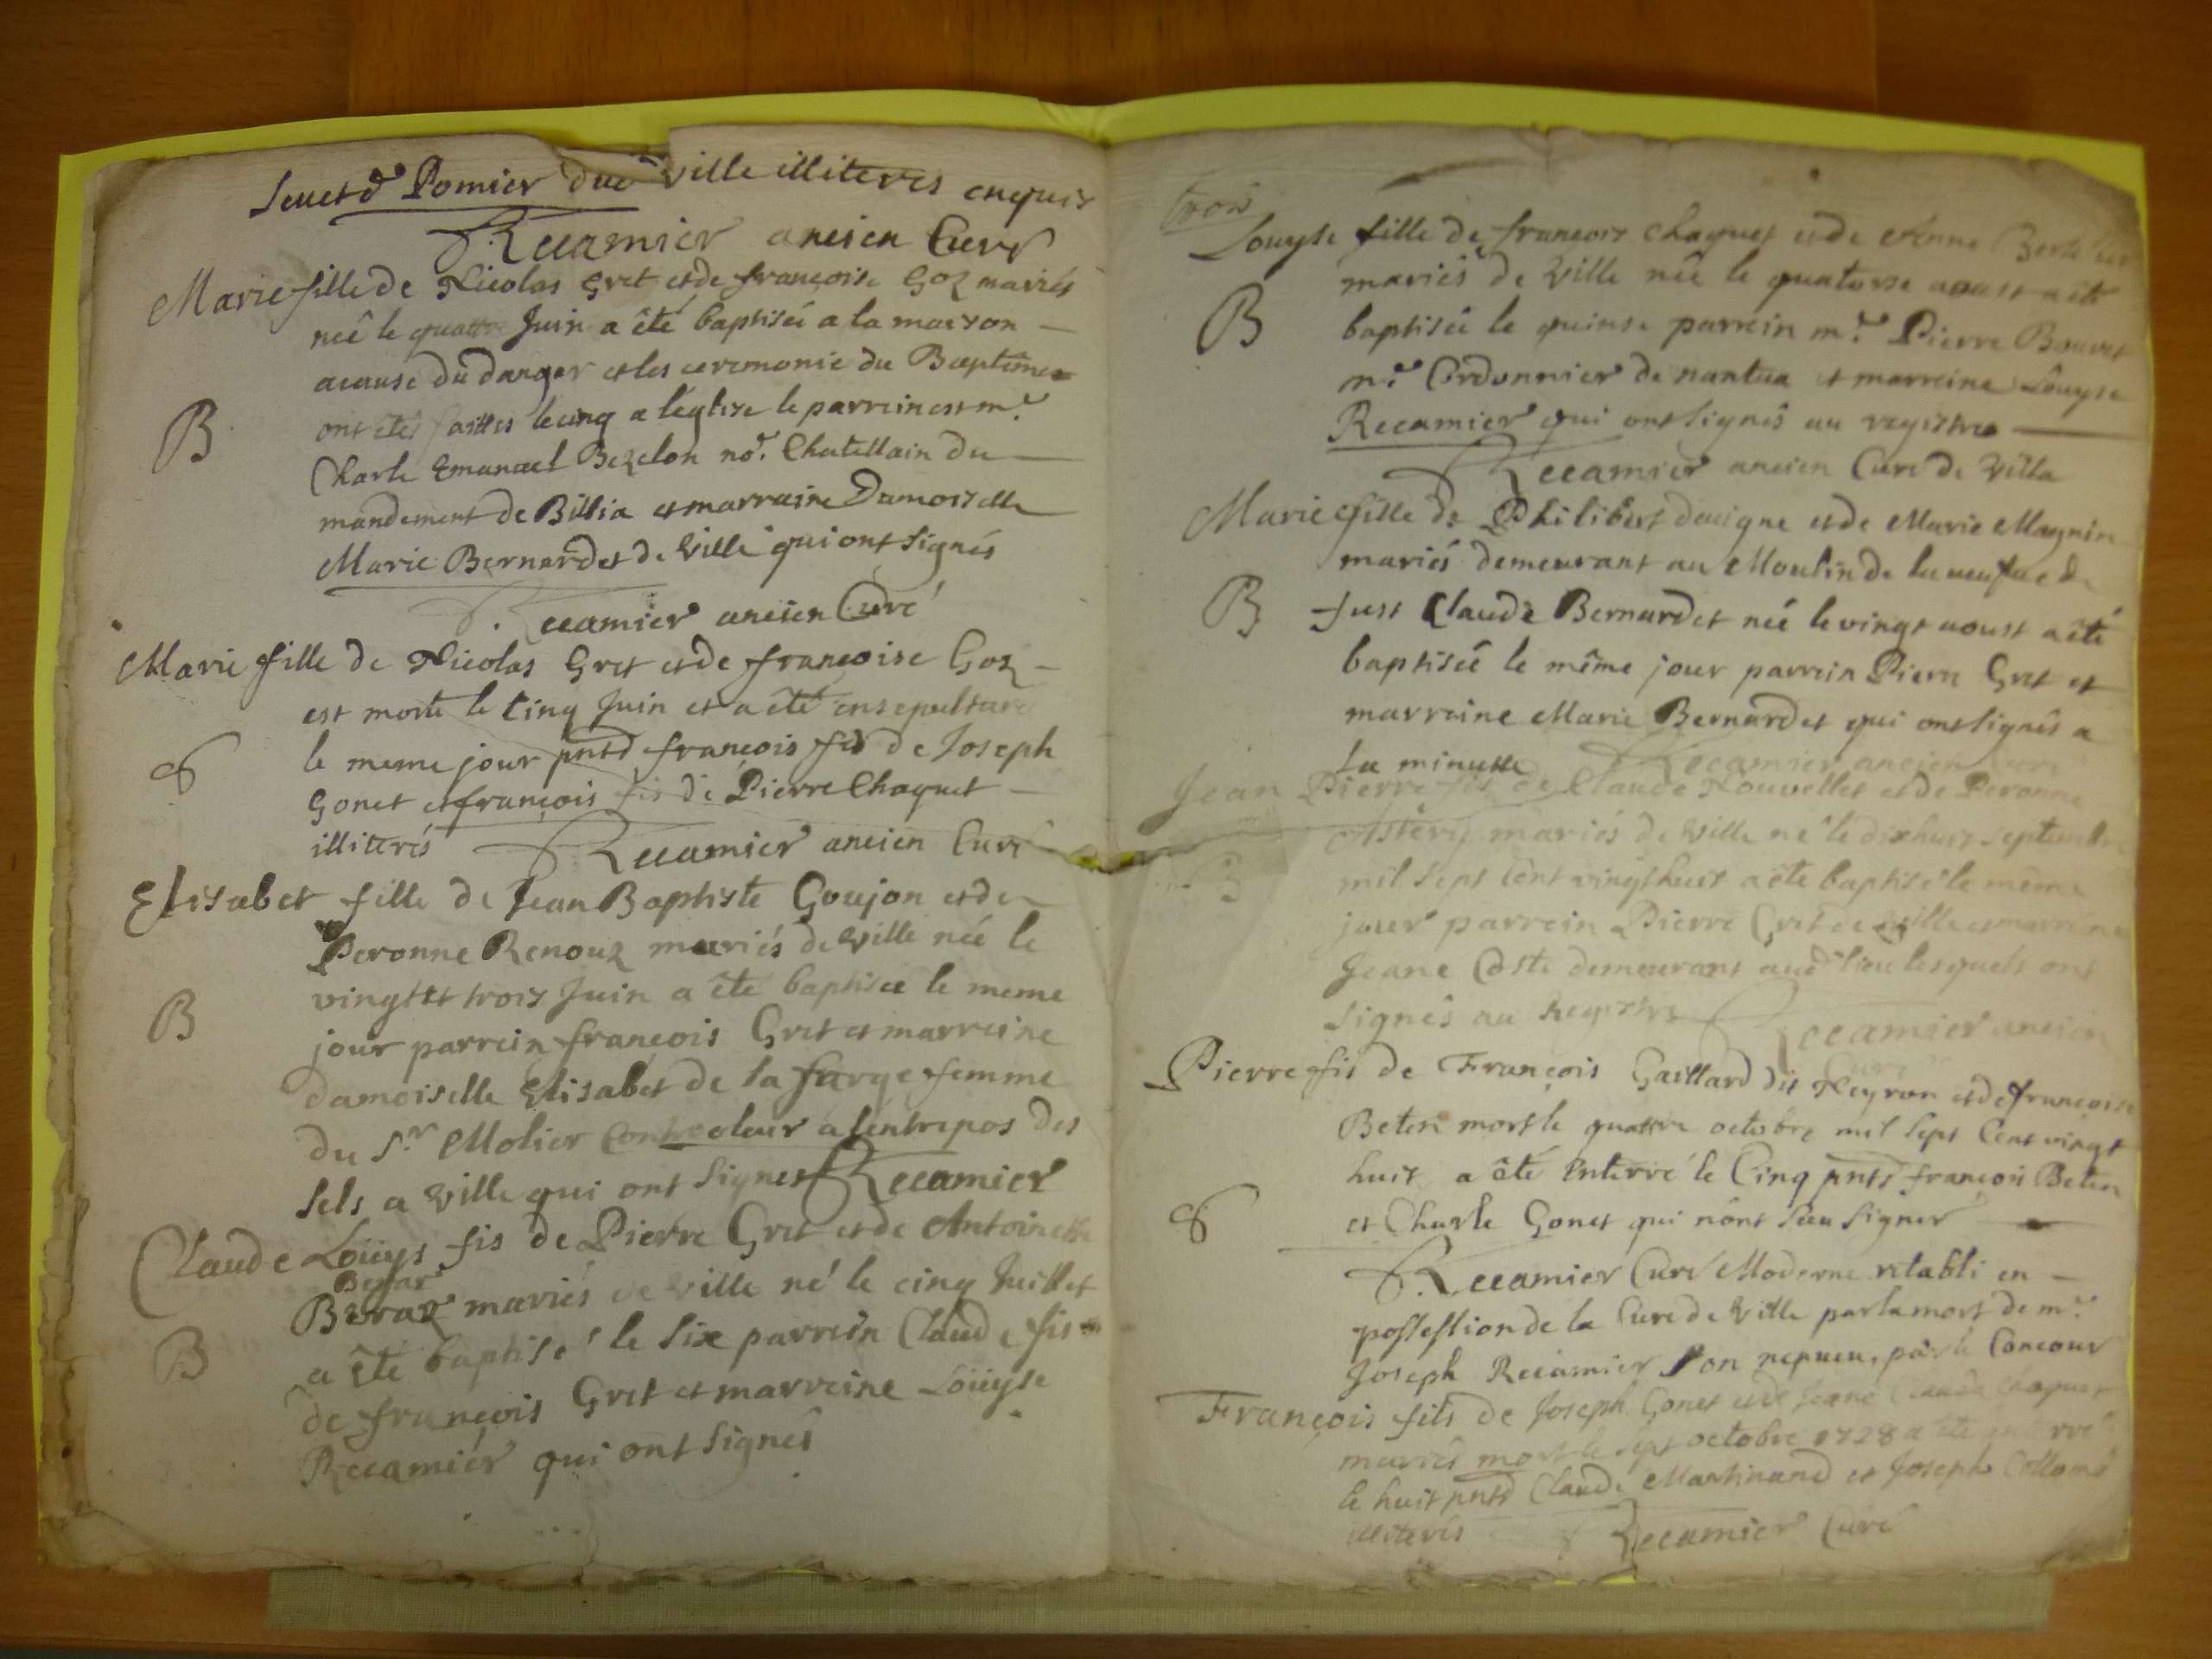 Seuet d Pomier dud ville illiteres enquis
Recamier ancien Curé
Marie fille de Nicolas Gret et de françoise Goz mariés
neê le quattre Juin a êté baptiseé a la maison
acause du danger et les ceremonie du Baptême
B ont êtés faittes le cinq a léglise le parrein est mr.
Charle Emanuel Bezelon nore. Chatellain du
mandement de Billia et marraine Damoiselle
Marie Bernardet de Ville qui ont signés
Recamier ancien Curé
Marie fille de Nicolas Gret et de françoise Goz
est morte le Cinq Juin et a êté ensepulturé
le meme jour pnts françois fis de Joseph
Gonet et françois fis de Pierre Chaquet
illiterés Recamier ancien Curé
Elisabet fille de Jean Baptiste Goujon et de
Peronne Renouz mariés de Ville neé le
vingt et trois Juin a êté baptiseé le meme
B
jour parrein françois Gret et marreine
damoiselle Elisabet de la farge femme
du Sr. Molier Controoleur a lentrepos des
sels a Ville qui ont signes Recamier
Claude Loüys fis de Pierre Gret et de Antoinette
Beraz mariés de Ville né le cinq Juillet
B a êté baptisé le six parrein Claude fis
de françois Gret et marreine Loüyse
Recamier qui ont signés
trois
Louyse fille de françois Chaquet et de Anne
mariés de Ville née le quatorse aoust a êté
B baptiseé le quinse parrein mr. Pierre Bouvet
mre Cordonnier de nantua et marreine Louyse
Recamier qui ont signés au registre
Recamier ancien Curé de Ville
Marie fille de Philibert dauigne et de Marie Magnin
mariés demeurant au Moulin de la ueufue de
B fust Claude Bernardet neé le vingt aoust a êté
baptiseé le même jour parrein Pierre Gret et
marreine Marie Bernardet qui ont signés a
la minutte Recamier ancien Curé
Jean Pierre fis de Claude Nouvellet et de Peronne
mariés de Ville né le dixhuit septembre
B mil sept Cent vingthuit a êté baptisé le même
jour parrein Pierre Gret de Ville et marreine
Jeane Coste demeurans aud lieu lesquels ont
signés au registre Recamier ancien
Curé
Pierre fis de François Gaillard dit Neyron et de françoise
Beten mort le quattre octobre mil sept Cent vingt
huit a êté enterré le Cinq pnts françois Beten
et Charle Gonet qui nont sceu signer
Recamier Curé Moderne retabli en
possession de la Cure de Ville par la mort de mr.
Joseph Recamier son nepueu, par le Concour
François fils de Joseph Gonet et de Jeane Claude Chaquet
mariés mort le sept octobre 1728 a êté enterré
le huit pnts Claude Martinand et Joseph
illiterés Recamier Curé